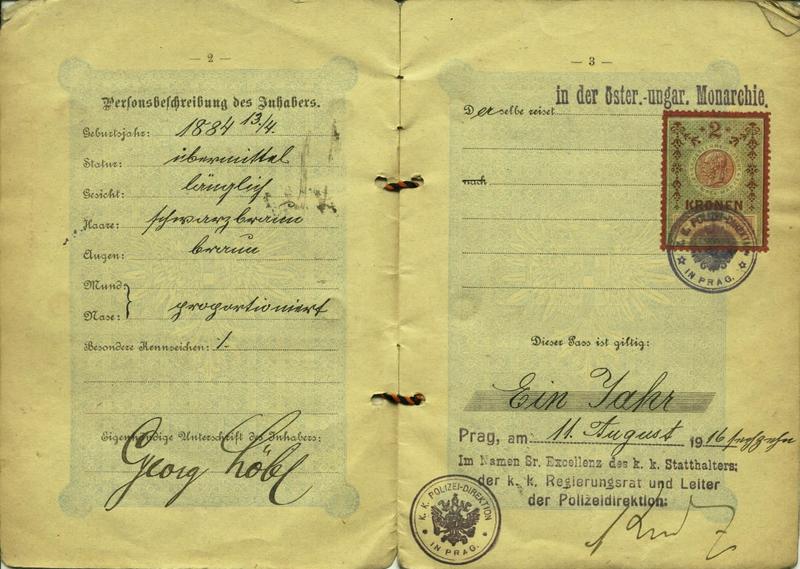 — 2 —
Personsbeschreibung des Inhabers.
Geburtsjahr: 1884 13/4.
Statur: übermittel
Gesicht: länglich
Haare: schwarzbraun
Augen: braun
Mund:
Nase: proportioniert
Besondere Kennzeichen: /.
Eigenhändige Unterschrift des Inhabers:
Georg Löbl
— 3 —
in der öster.-ungar. Monarchie.
Derselbe reiset
nach
2
KRONEN
K. K. POLIZEI-DIREKTION
IN PRAG.
Dieser Pass ist giltig:
Ein Jahr
Prag, am 11. August 1916 sechzehn
Im Namen Sr. Excellenz des k. k. Statthalters:
der k. k. Regierungsrat und Leiter
der Polizeidirektion:
K. K. POLIZEI-DIREKTION
IN PRAG.